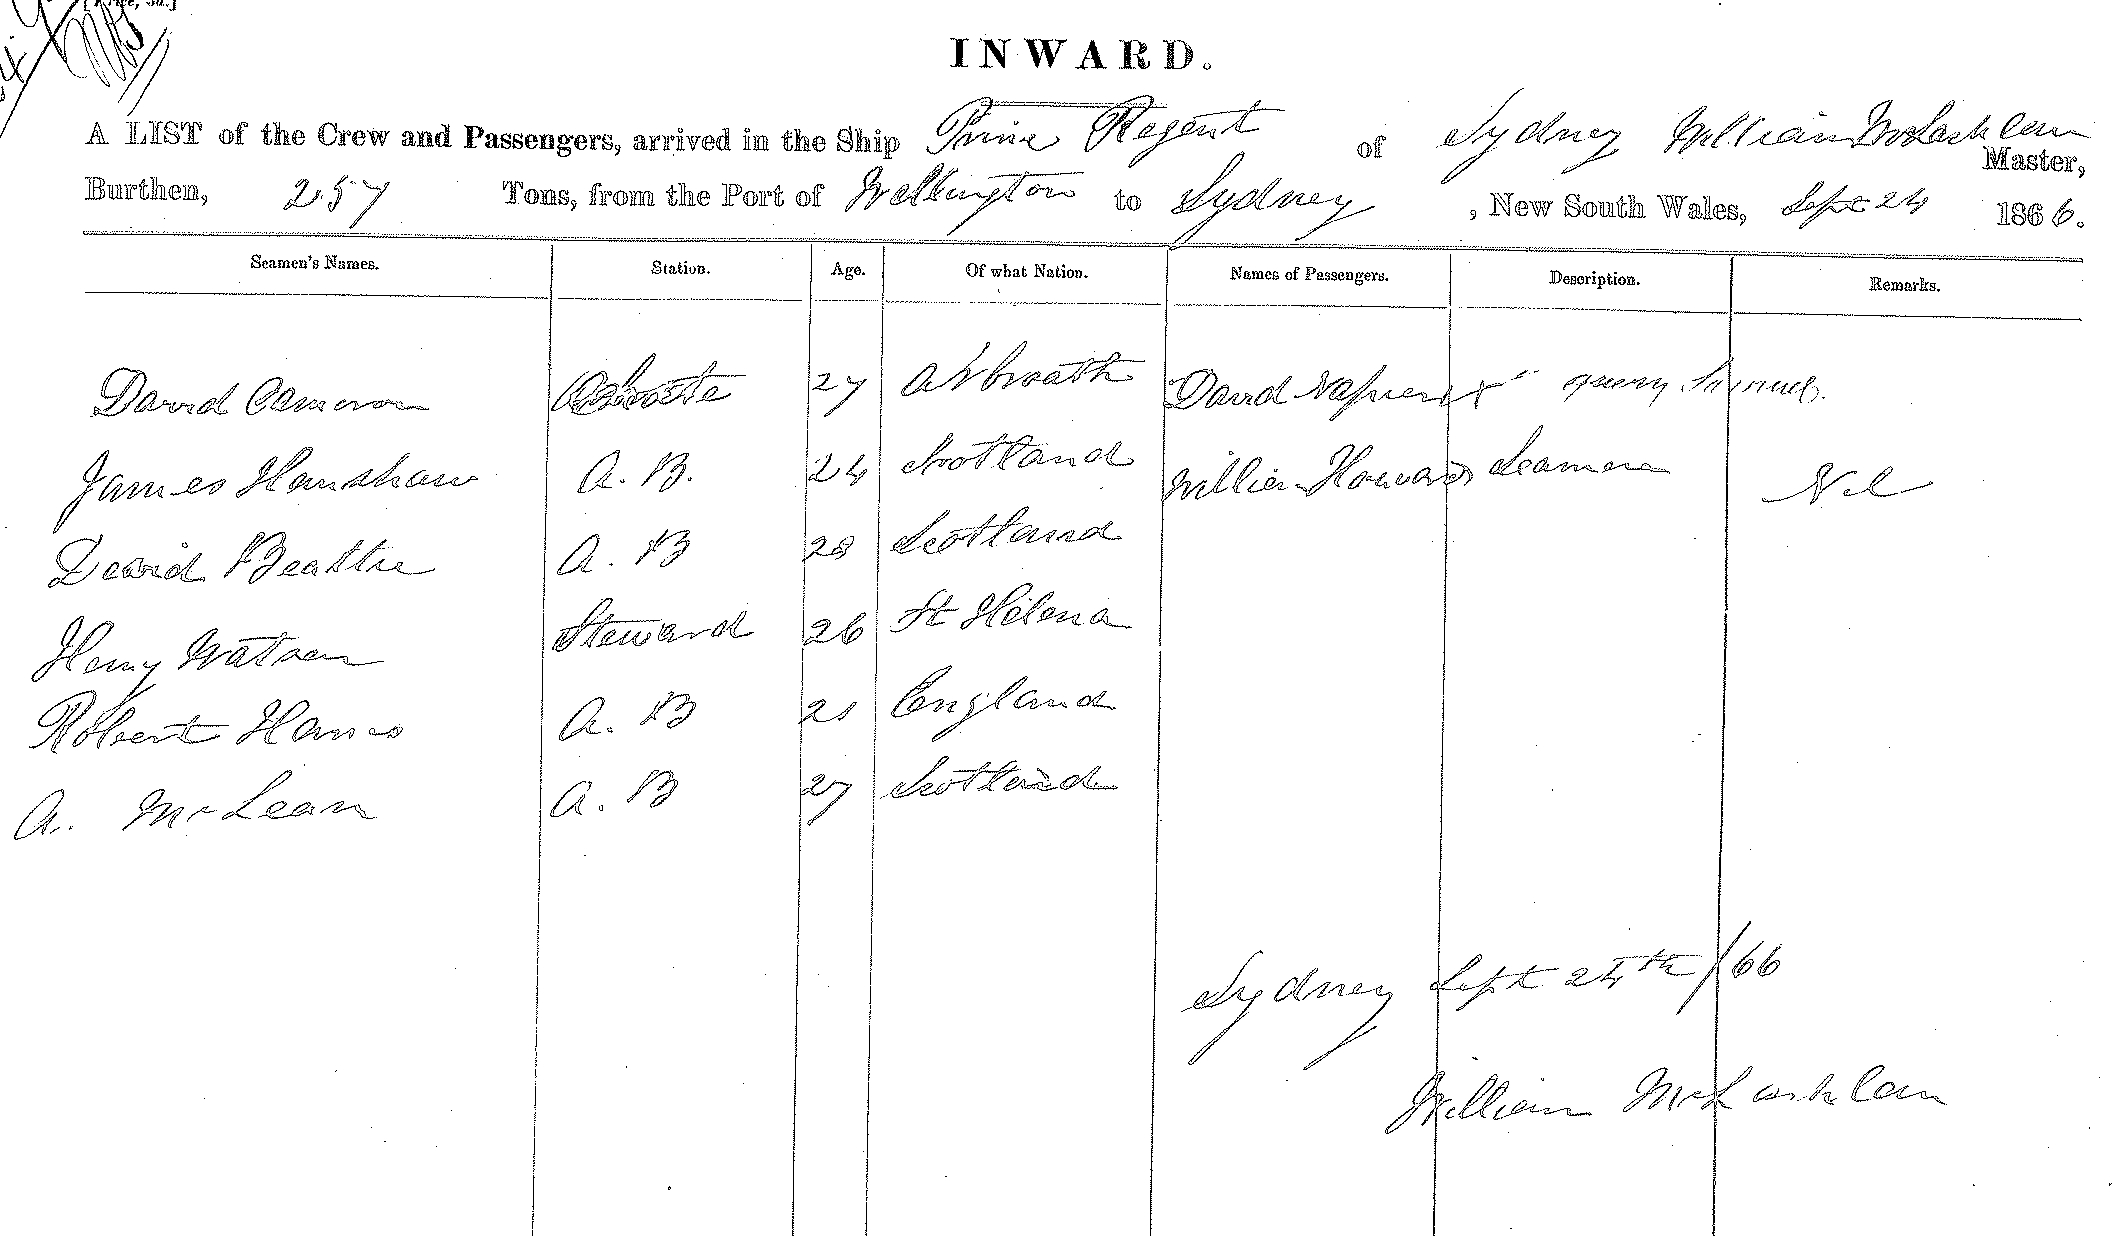 INWARD.
A LIST of the Crew and Passengers, arrived in the Ship Prince Regent of Sydney William McLachlan Master,
Burthen, 257 Tons, from the Port of Wellington to Sydney, New South Wales, Sept 24 1866.
Seamen's Names. Station. Age. Of what Nation. Names of Passengers. Description. Remarks.
David Cameron 27 Arbroath David Napier
James Hanshaw A. B. 24 Scotland William Howard Seaman Nil
David Beattie A. B 28 Scotland
Henry Watson Steward 26 St Helena
Robert A. B 21 England
A. McLean A. B 27 Scotland
Sydney Sept 24th /66
William McLachlan